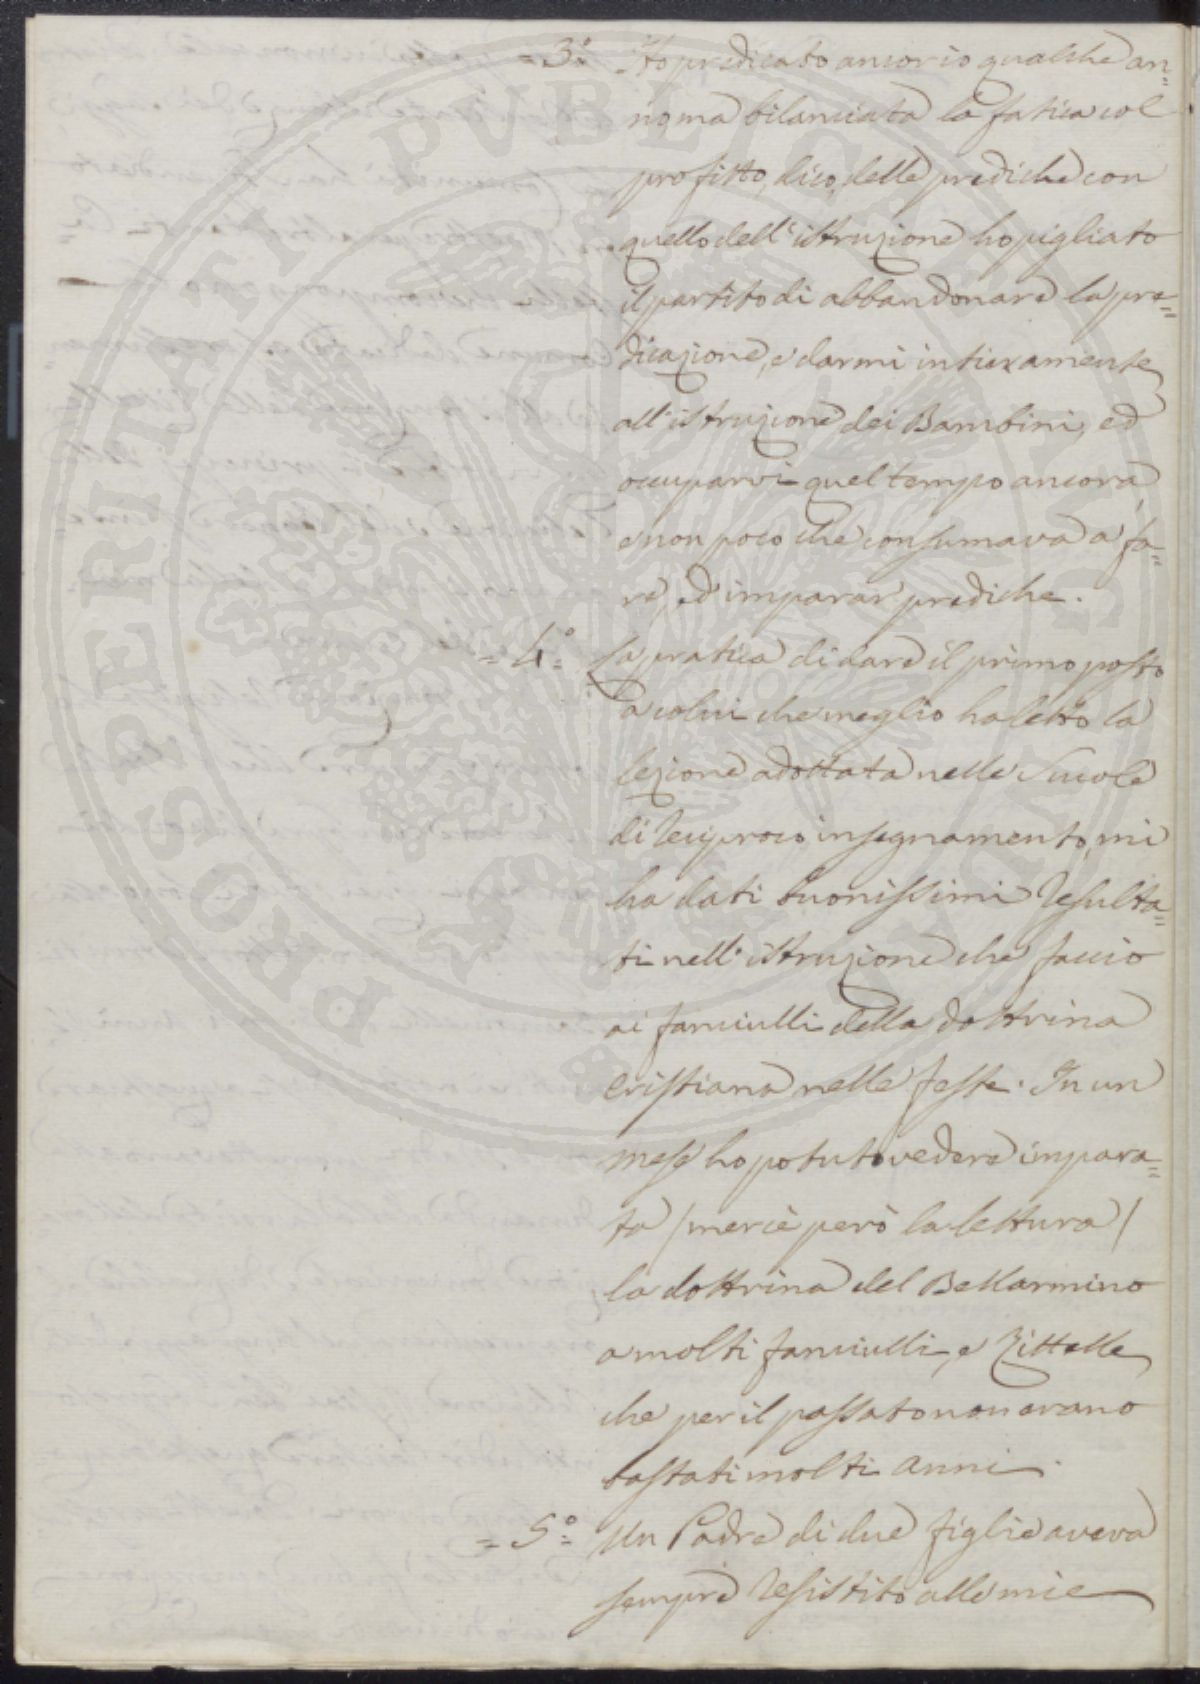 = 3.° Ho predicato ancor io qualche an=
no ma bilanciata la fatica col
profitto, dico, delle prediche con
quello dell'istruzione ho pigliato
il partito di abbandonare la pre=
dicazione, e darmi intieramente
all'istruzione dei Bambini, ed
occuparvi quel tempo ancora,
e non poco che consumava a fa=
re, ed imparar prediche.
= 4.° = La pratica di dare il primo posto
a colui che meglio ha letto la
lezione adottata nelle Scuole
di reciproco insegnamento, mi
ha dati buonissimi resulta=
ti nell'istruzione che faccio
ai fanciulli della dottrina
cristiana nelle feste. In un
mese ho potuto vedere impara=
ta / mercè però la lettura /
la dottrina del Bellarmino
a molti fanciulli, e Zittelle,
che per il passato non erano
bastati molti anni.
= 5.° = Un Padre di due figlie aveva
sempre resistito alle mie
PROSPERITATI PUBLICAE AUGENDAE